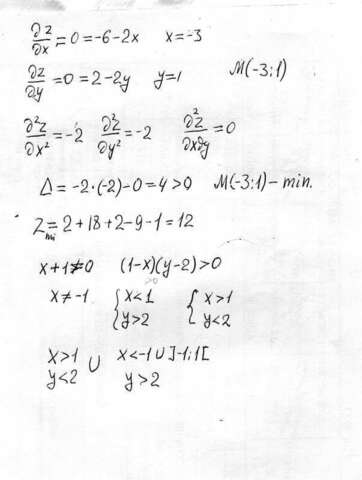 ∂z/∂x = 0 = -6-2x   x=-3
∂z/∂y = 0 = 2-2y   y=1   M(-3;1)
∂²z/∂x² = -2   ∂²z/∂y² = -2   ∂²z/∂x∂y = 0
Δ = -2·(-2)-0=4>0   M(-3;1)-min.
Zmi = 2+18+2-9-1=12
x+1≠0   (1-x)(y-2)>0
x≠-1   { x<1   { x>1
y>2   y<2
x>1 ∪ x<-1 ∪ ]-1;1[
y<2   y>2